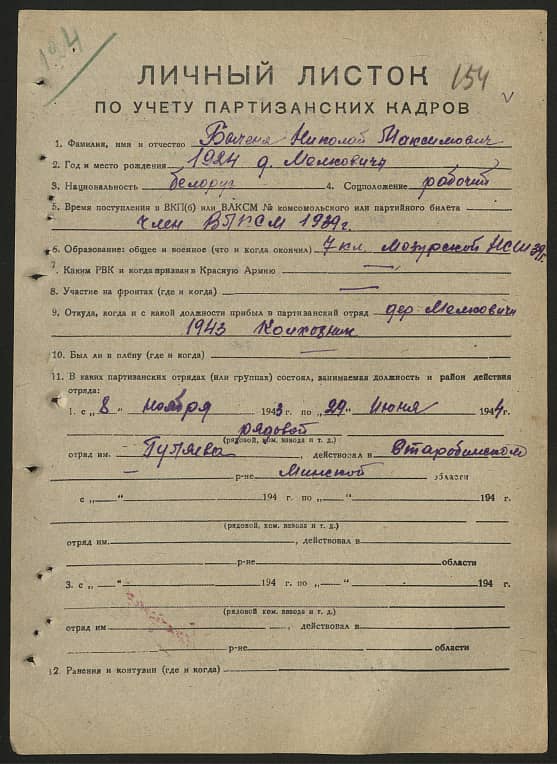 194
154
ЛИЧНЫЙ ЛИСТОК
ПО УЧЕТУ ПАРТИЗАНСКИХ КАДРОВ
1. Фамилия, имя и отчество Николай Максимович
2. Год и место рождения 1924 д. Мелковичи
3. Национальность белорус 4. Соцположение рабочий
5. Время поступления в ВКП(б) или ВЛКСМ № комсомольского или партийного билета
член ВЛКСМ 1939г.
6. Образование: общее и военное (что и когда окончил) 7 кл. НСШ 39г.
7. Каким РВК и когда призван в Красную Армию —
8. Участие на фронтах (где и когда) —
9. Откуда, когда и с какой должности прибыл в партизанский отряд дер. Мелковичи
1943 Колхозник
10. Был ли в плену (где и когда) —
11. В каких партизанских отрядах (или группах) состоял, занимаемая должность и район действия
отряда:
1. с „8 “ ноября 1943 г. по „29“ июня 1944 г.
рядовой
(рядовой, ком. взвода и т. д.)
отряд им. Гуляева, действовал в Старобинском
— р-не Минской области
с „—“ 194 г. по „—“ 194 г.
(рядовой, ком. взвода и т. д.)
отряд им. , действовал в
р-не области
3. с „—“ 194 г. по „—“ 194 г.
(рядовой ком. взвода и т. д.)
отряд им , действовал в
р-не области
12. Ранения и контузии (где и когда)